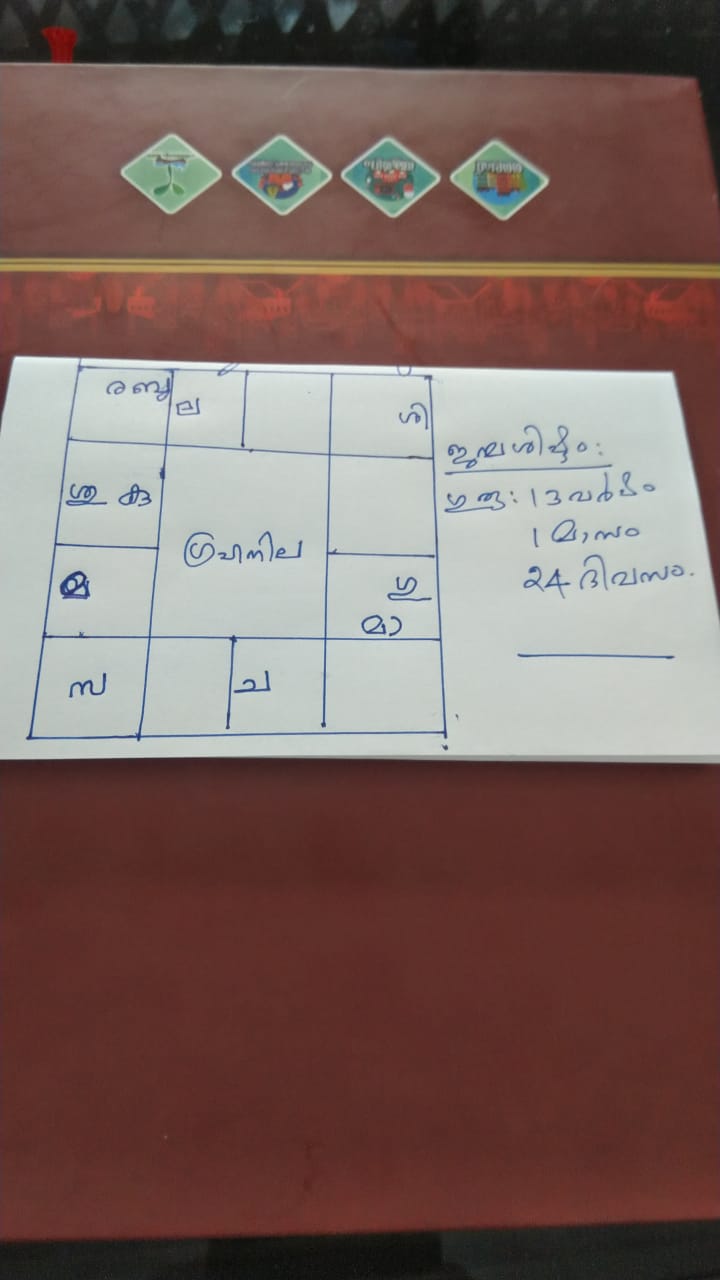 രബു
ല
ശി
ശു കു
മ
ഗ്രഹനില
ഗു
മാ
സ
ച
ജന്മശിഷ്ടം:
ഗുരു: 13 വർഷം
1 മാസം
24 ദിവസം.